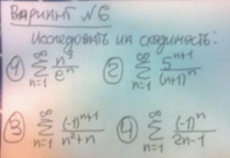 Вариант №6
Исследовать на сходимость:
1) ∑_{n=1}^{∞} n³/eⁿ 2) ∑_{n=1}^{∞} 5^{n+1}/(n+1)ⁿ
3) ∑_{n=1}^{∞} (-1)^{n+1}/(n²+n) 4) ∑_{n=1}^{∞} (-1)ⁿ/(2n-1)